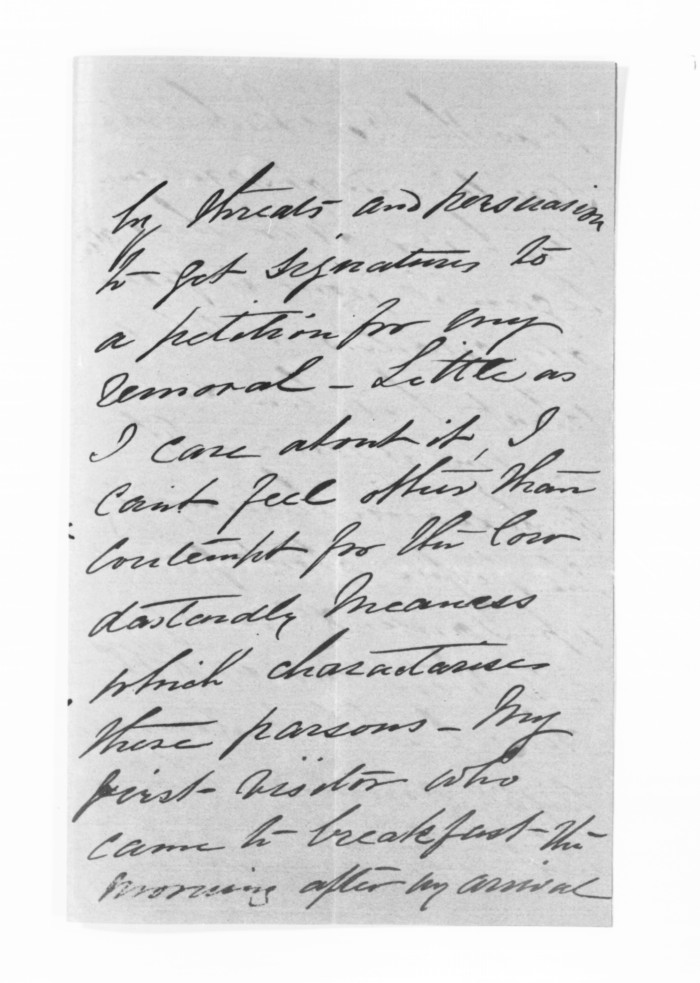 by threats and persuasion
to get signatures to
a petition for my
removal – Little as
I care about it, I
can't feel other than
contempt for the low
dastardly meaness
which charactarises
these parsons – My
first visitor who
came to breakfast the
morning after my arrival